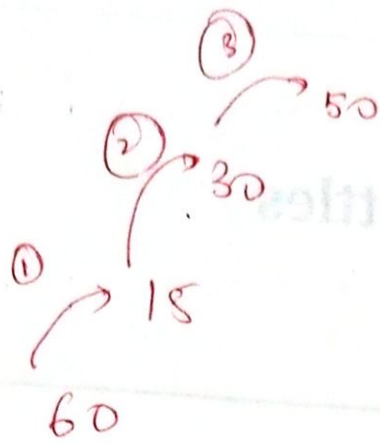 ③
50
②
30
①
15
60